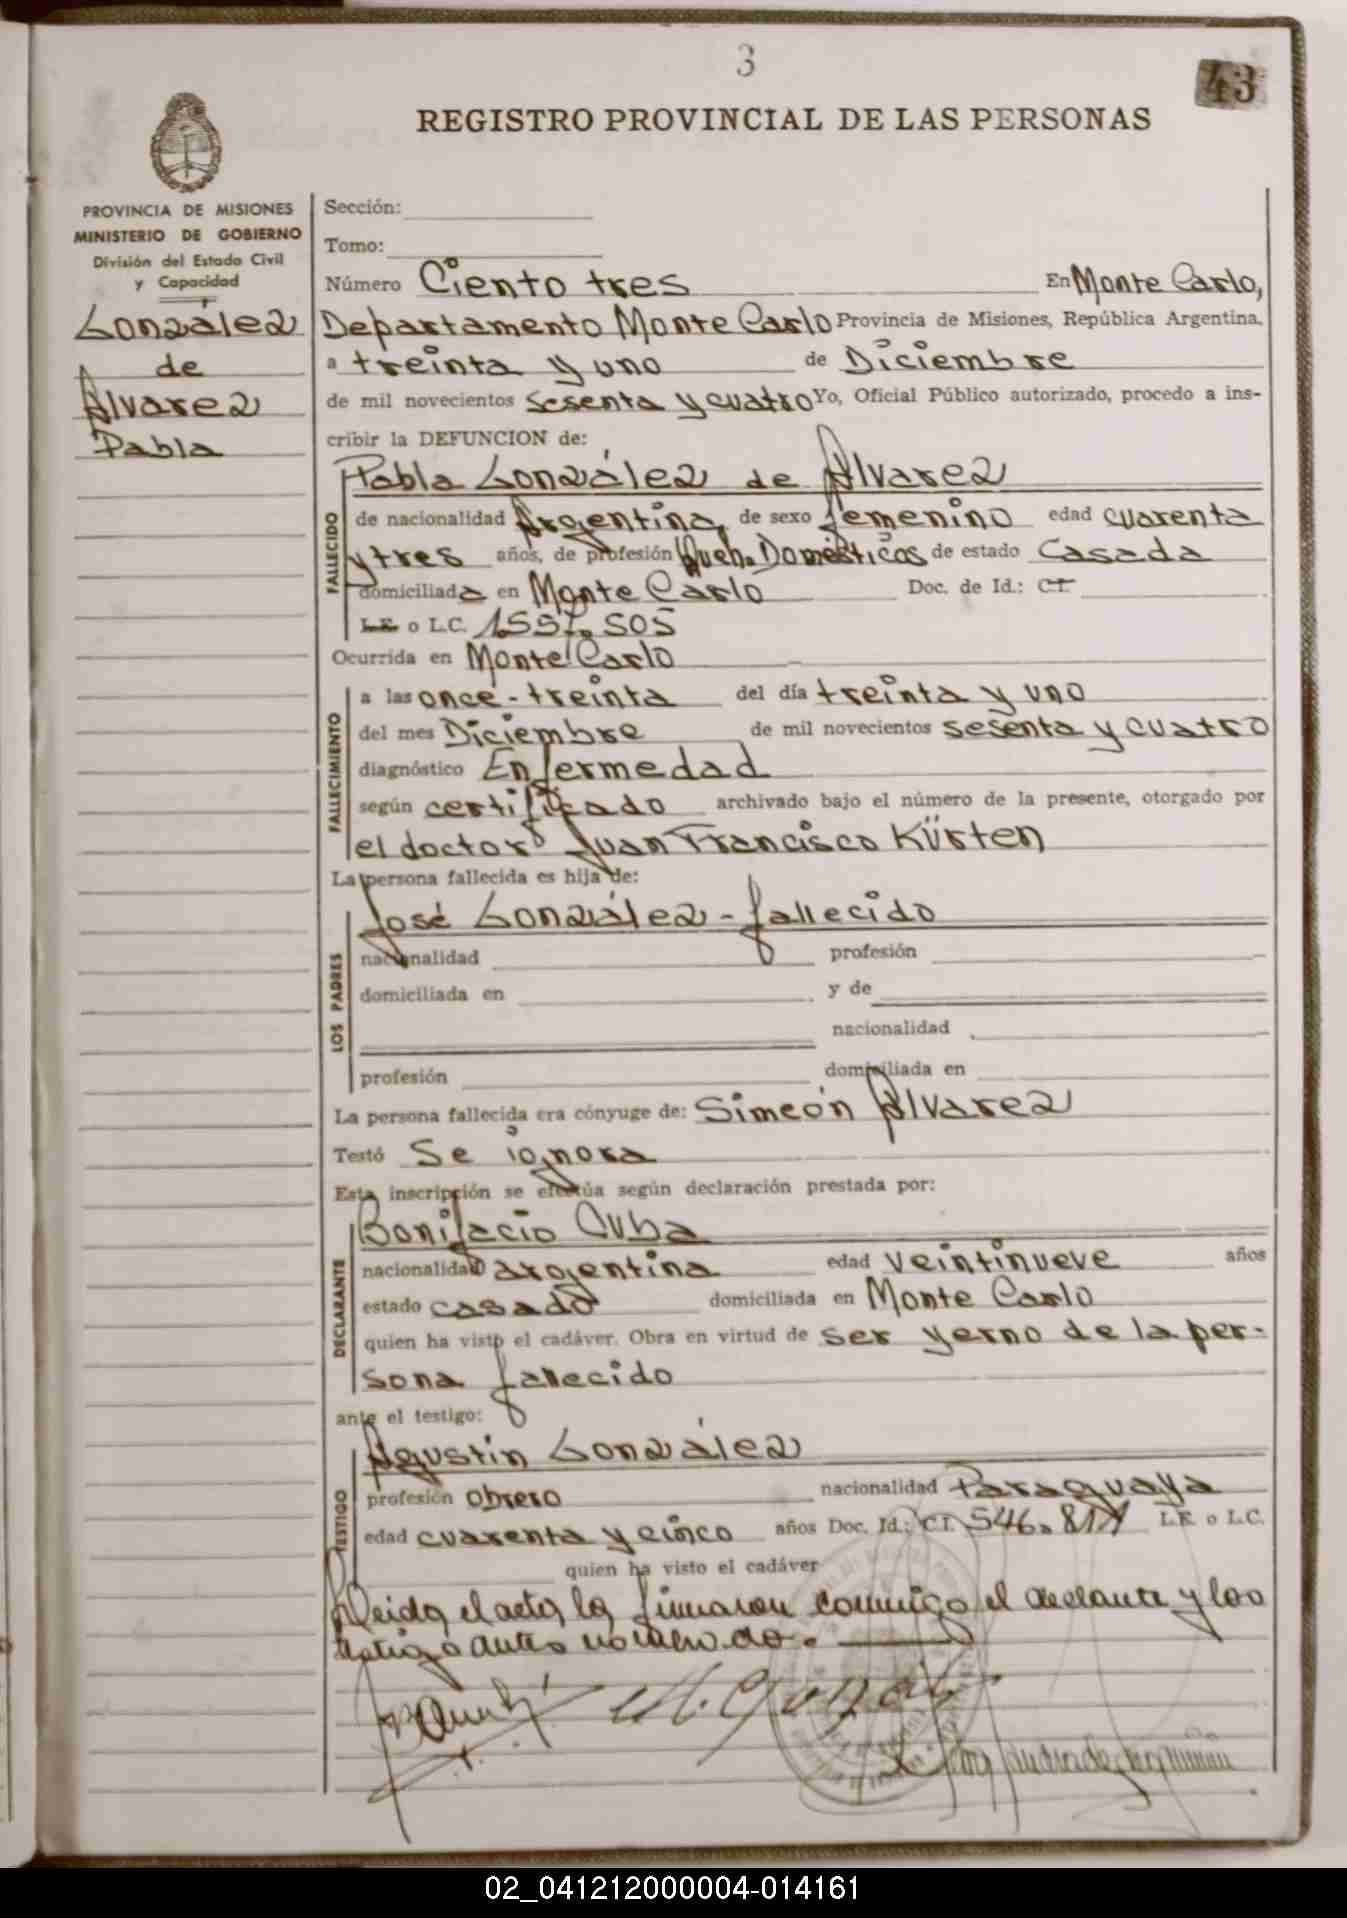 3
43
REGISTRO PROVINCIAL DE LAS PERSONAS
PROVINCIA DE MISIONES
MINISTERIO DE GOBIERNO
División del Estado Civil
y Capacidad
González
de
Alvarez
Pabla
Sección:
Tomo:
Número Ciento tres En Monte Carlo,
Departamento Monte Carlo Provincia de Misiones, República Argentina,
a treinta y uno de Diciembre
de mil novecientos sesenta y cuatro Yo, Oficial Público autorizado, procedo a ins-
cribir la DEFUNCION de:
Pabla González de Alvarez
FALLECIDO
de nacionalidad Argentina, de sexo femenino edad cuarenta
y tres años, de profesión Queh. Domésticos de estado Casada
domiciliada en Monte Carlo Doc. de Id.: C.I.
L.E. o L.C. 1.557.505
Ocurrida en Monte Carlo
FALLECIMIENTO
a las once - treinta del día treinta y uno
del mes Diciembre de mil novecientos sesenta y cuatro
diagnóstico Enfermedad
según certificado archivado bajo el número de la presente, otorgado por
el doctor Juan Francisco Kürten
La persona fallecida es hija de:
LOS PADRES
José González - fallecido
nacionalidad profesión
domiciliada en y de
nacionalidad
profesión domiciliada en
La persona fallecida era cónyuge de: Simeón Alvarez
Testó Se ignora
Esta inscripción se efectúa según declaración prestada por:
DECLARANTE
Bonifacio Cuba
nacionalidad argentina edad veintinueve años
estado casado domiciliada en Monte Carlo
quien ha visto el cadáver. Obra en virtud de ser yerno de la per-
sona fallecido
ante el testigo:
TESTIGO
Agustín González
profesión obrero nacionalidad Paraguaya
edad cuarenta y cinco años Doc. Id.: C.I. 546.811 L.E. o L.C.
quien ha visto el cadáver
Leida el acta, la firmaron conmigo el declarante y los
testigo antes nombrado.
02_041212000004-014161